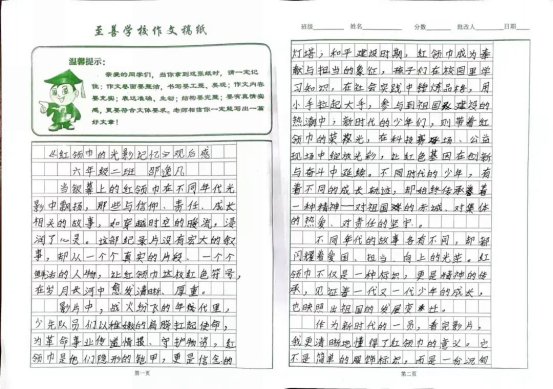 至善学校作文稿纸
温馨提示：
亲爱的同学们，当你拿到这张纸时，请一定记
住：作文卷面要整洁，书写要工整、美观；作文内容
要充实；表达准确、生动；结构要完整；要有真情实
感，更要符合文体要求。老师相信你一定能写出一篇
好文章！
《红领巾的光影记忆》观后感
六年级二班 邵逸凡
当银幕上的红领巾在不同年代光
影中飘扬，那些与信仰、责任、成长
相关的故事，如穿越时空的暖流，浸
润了心灵。这部纪录片没有宏大的叙
事，却从一个个真实的片段、一个个
鲜活的人物，让红领巾这抹红色符号，
在岁月长河中愈发清晰、厚重。
影片中，战火纷飞的年代里，
少先队员们以稚嫩的肩膀扛起使命，
为革命事业传递情报、守护物资，红
领巾是他们隐形的铠甲，更是信念的
第一页
班级 姓名 分数 批改人 日期
灯塔；和平建设时期，红领巾成为奉
献与担当的象征，孩子们在校园里学
习知识，在社会实践中锤炼品格，用
小手拉起大手，参与到祖国建设的
热潮中；新时代的少年们，则带着红
领巾的荣光，在科技赛场、公益
现场中绽放光彩，让红色基因在创新
与奋斗中延续。不同时代的少年，有
着不同的成长轨迹，却始终传承着
一种精神——对祖国的赤诚、对集体
的热爱、对责任的坚守。
不同年代的故事各有不同，却都
闪耀着爱国、担当、向上的光芒。红
领巾不仅是一种标识，更是精神的传
承，见证着一代又一代少年的成长，
也映照出祖国的发展变迁。
作为新时代的一员，看完影片，
我更清晰地懂得了红领巾的意义，它
不是简单的服饰标识，而是一份沉甸
第二页